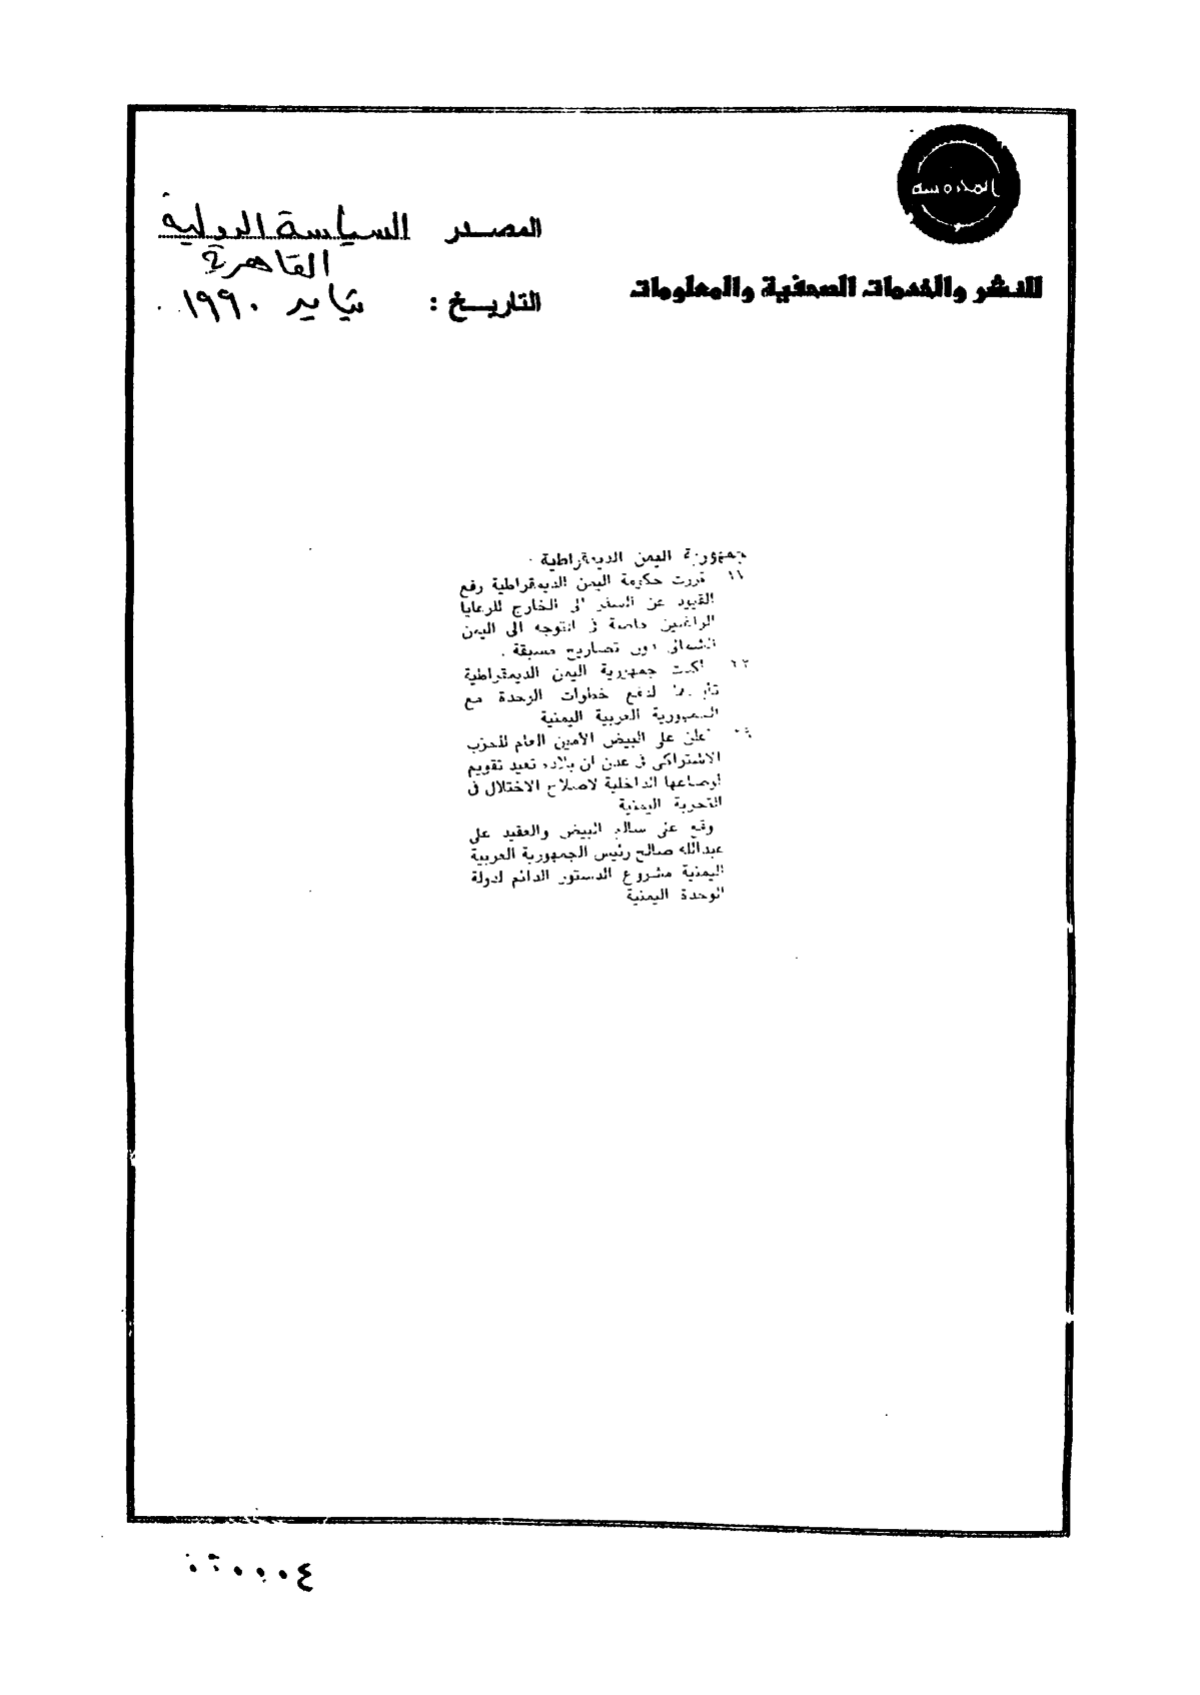 المحروسة
للنشر والخدمات الصحفية والمعلومات
المصدر السياسة الدولية
القاهرة
التاريخ : يناير ١٩٩٠
جمهورية اليمن الديمقراطية
١١ قررت حكومة اليمن الديمقراطية رفع
القيود عن السفر الى الخارج للرعايا
الراغبين خاصة فى التوجه الى اليمن
الشمالى دون تصاريح مسبقة .
٢٢ اكدت جمهورية اليمن الديمقراطية
تأييدها لدفع خطوات الوحدة مع
الجمهورية العربية اليمنية
اعلن على البيض الأمين العام للحزب
الاشتراكى فى عدن ان بلاده تعيد تقويم
اوضاعها الداخلية لاصلاح الاختلال فى
التجربة اليمنية
وقع على سالم البيض والعقيد على
عبدالله صالح رئيس الجمهورية العربية
اليمنية مشروع الدستور الدائم لدولة
الوحدة اليمنية